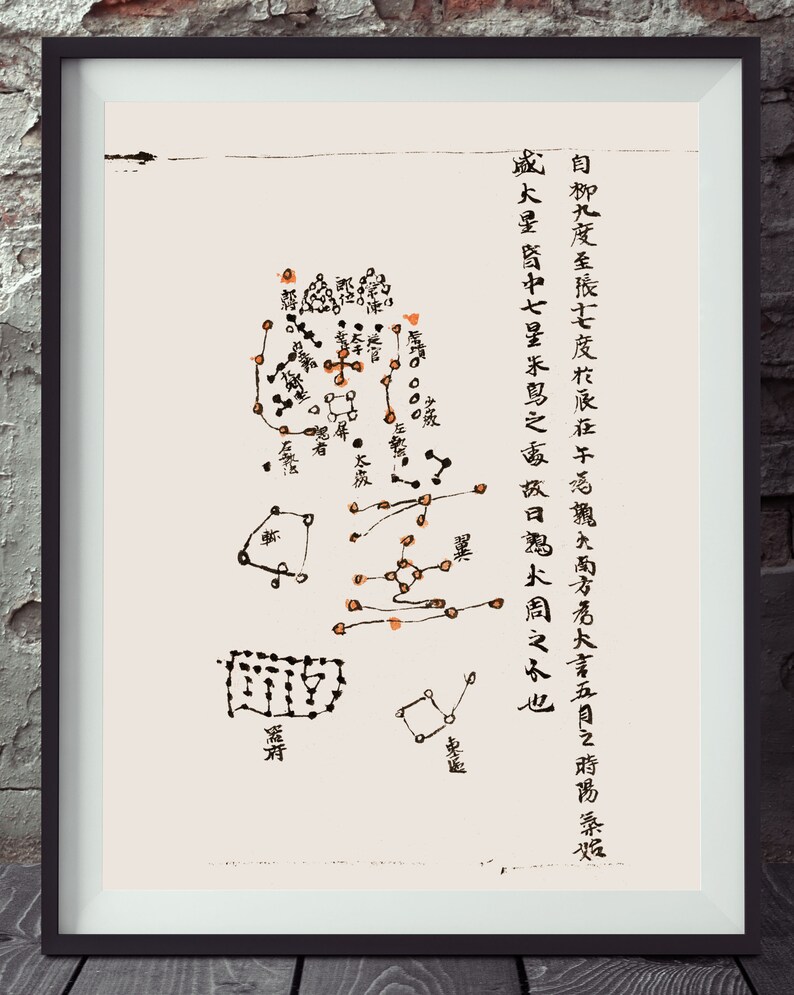 自柳九度至張十七度於辰在午為鶉火南方為火言五月之時陽氣始
盛火星昏中七星朱鳥之處故曰鶉火周之分也
郎將
郎位
常陳
幸臣
太子
從官
虎賁
少微
屏
謁者
左執法
右執法
太微
軫
翼
器府
東甌